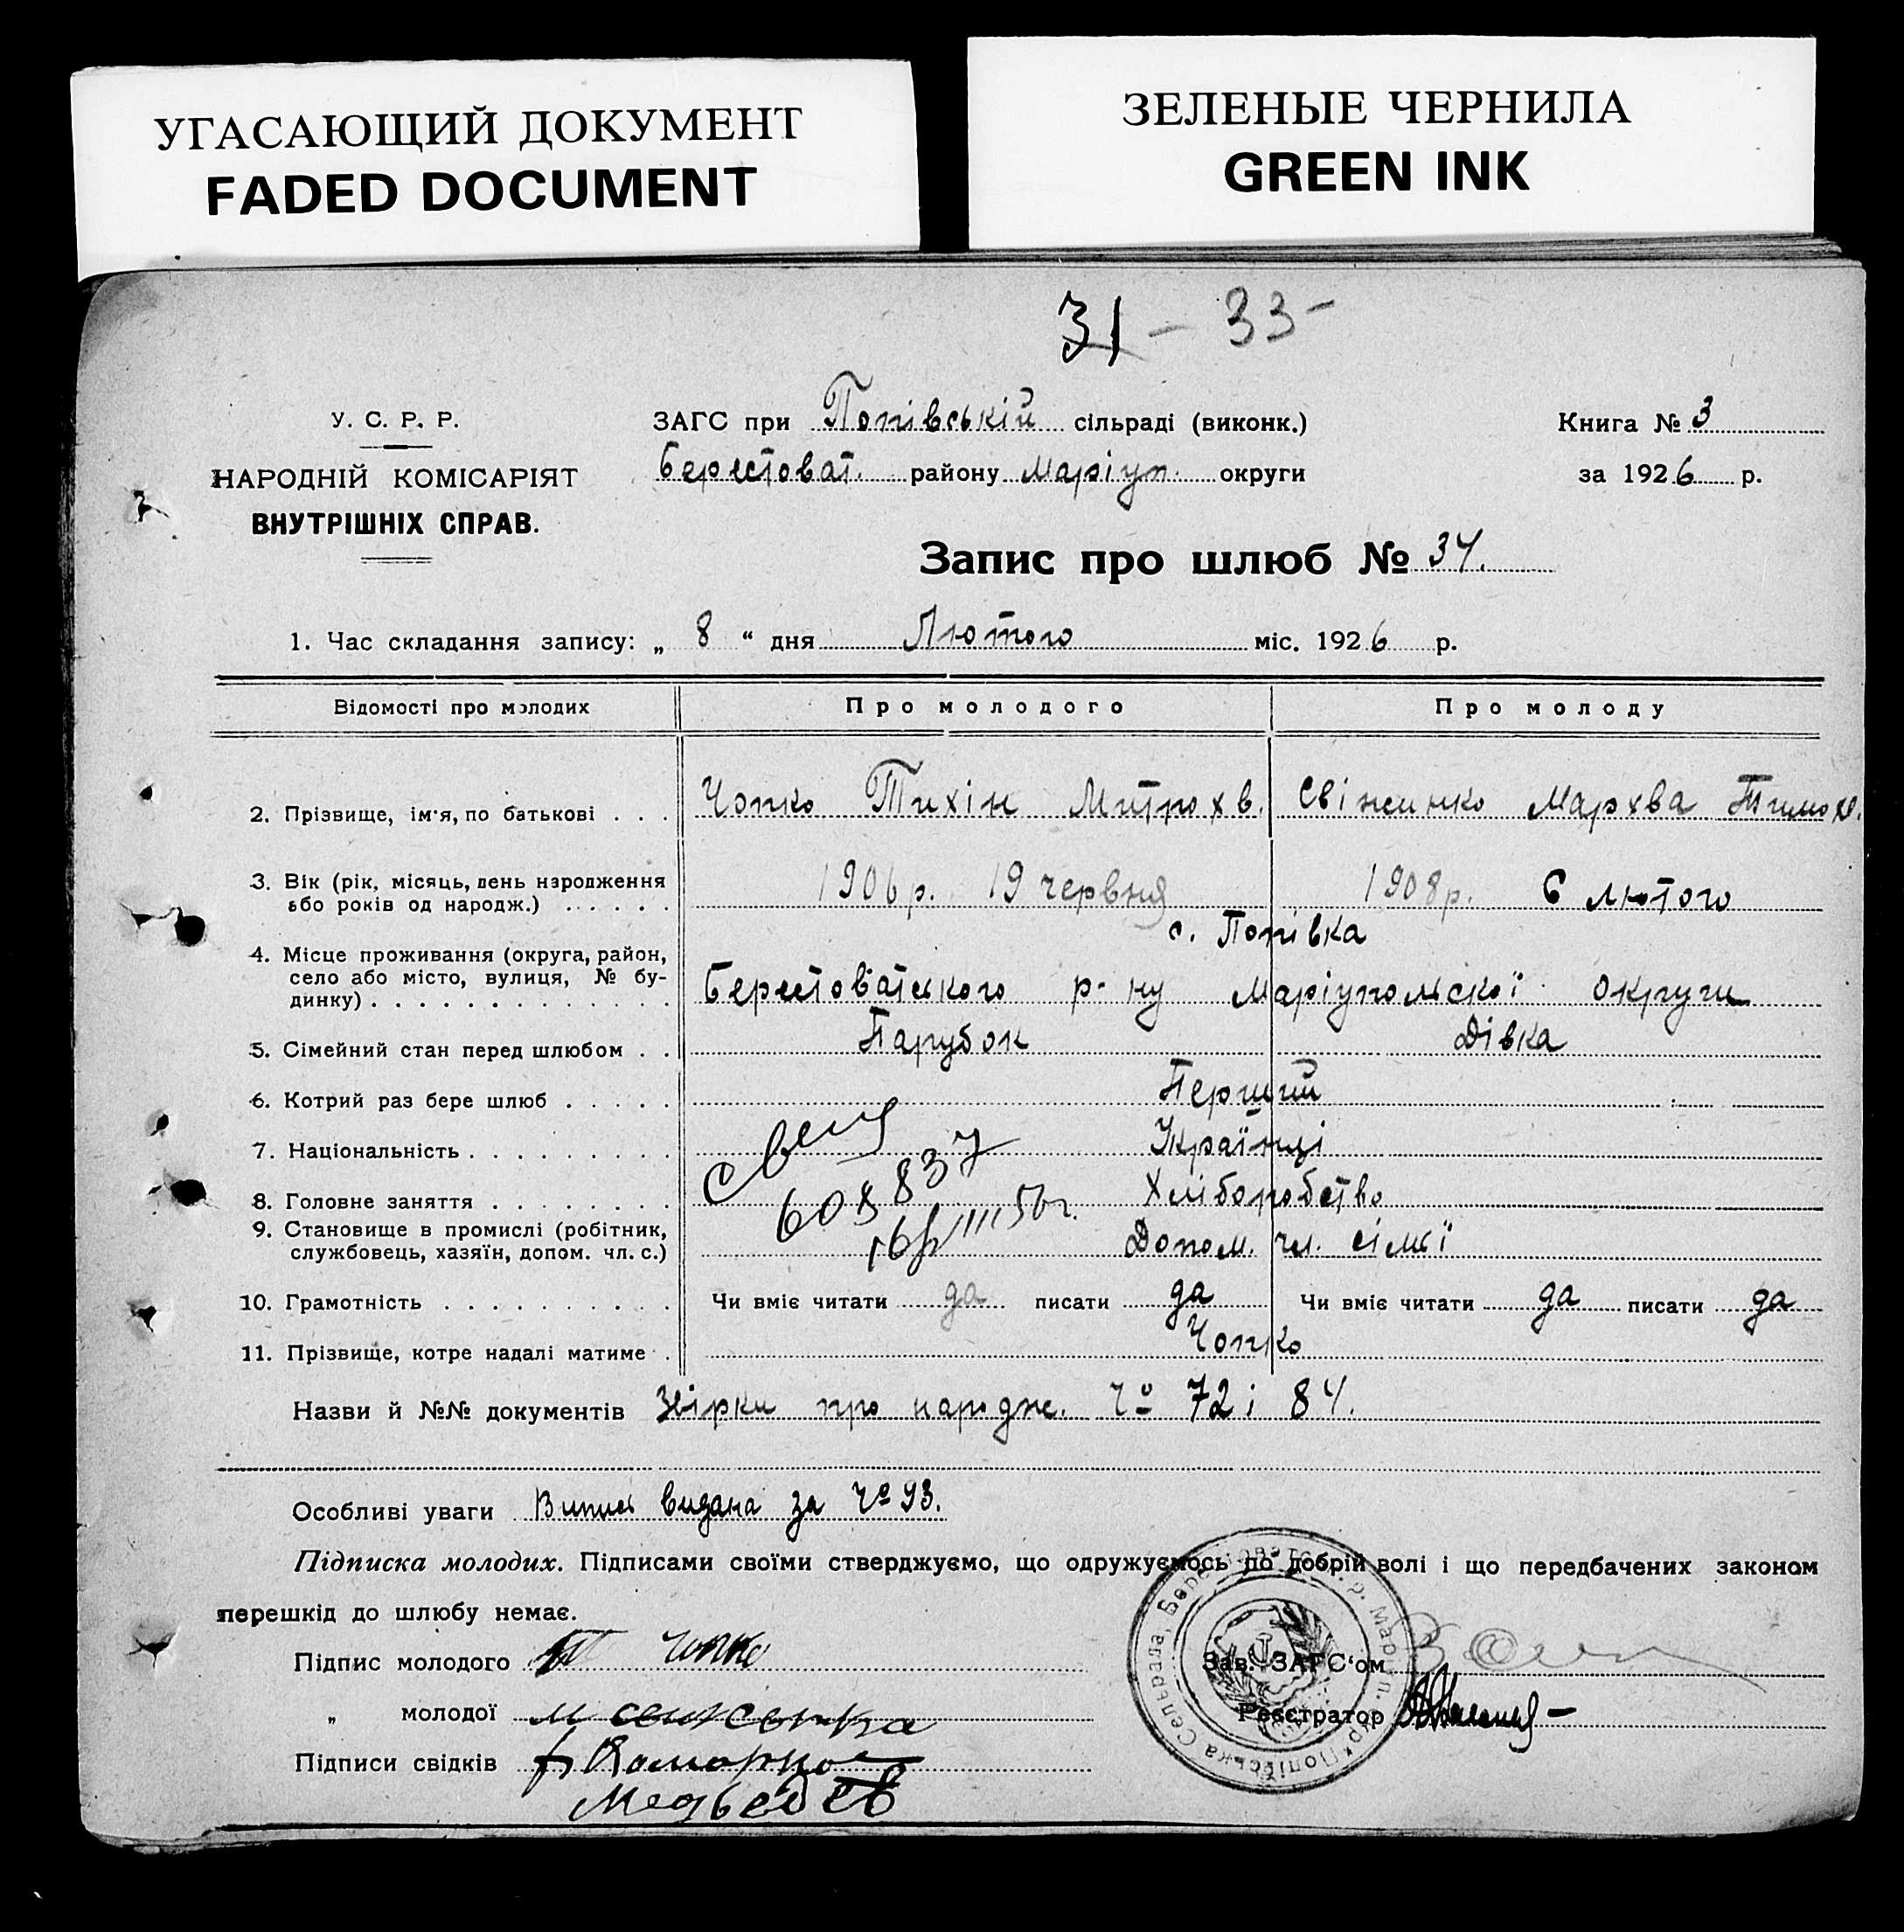 УГАСАЮЩИЙ ДОКУМЕНТ
FADED DOCUMENT
ЗЕЛЕНЫЕ ЧЕРНИЛА
GREEN INK
31 - 33 -
У. С. Р. Р.
НАРОДНІЙ КОМІСАРІЯТ
ВНУТРІШНІХ СПРАВ.
ЗАГС при Попівській сільраді (виконк.)
Берестоват. району Маріуп. округи
Книга № 3
за 1926 р.
Запис про шлюб № 34.
1. Час складання запису: „ 8 “ дня Лютого міс. 1926 р.
Відомості про молодих Про молодого Про молоду
2. Прізвище, ім'я, по батькові . . . Чопко Тихін Митрохв. Свіженко Мархва Тимох.
3. Вік (рік, місяць, день народження 1906 р. 19 червня 1908 р. 6 лютого
або років од народж.) . . . . .
с. Попівка
4. Місце проживання (округа, район,
село або місто, вулиця, № бу- Берестоватського р-ну Маріупольскої округи
динку) . . . . . . . . . . . . .
5. Сімейний стан перед шлюбом . . Парубок Дівка
6. Котрий раз бере шлюб . . . . . Перший
7. Національність . . . . . . . . . Українці
8. Головне заняття . . . . . . . . Хліборобство
9. Становище в промислі (робітник,
службовець, хазяїн, допом. чл. с.) Допом. чл. сімьї
10. Грамотність . . . . . . . . . . Чи вміє читати да писати да Чи вміє читати да писати да
11. Прізвище, котре надалі матиме . Чопко
Назви й №№ документів про народж. Чо 72 і 84.
Особливі уваги Випись видана за Чо 93.
Підписка молодих. Підписами своїми стверджуємо, що одружуємось по добрій волі і що передбачених законом
перешкід до шлюбу немає.
Підпис молодого Т Чопко
„ молодої М
Підписи свідків
Медведєв
Зав. ЗАГС'ом
Реєстратор